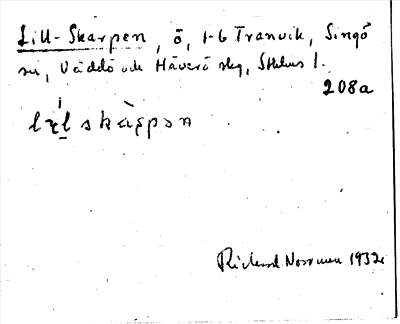 Lill-Skarpen, ö, 1-6 Tranvik, Singö
sn, Väddö och Häverö slg, Sthlms l.
208a
Rickard Norrman 1932